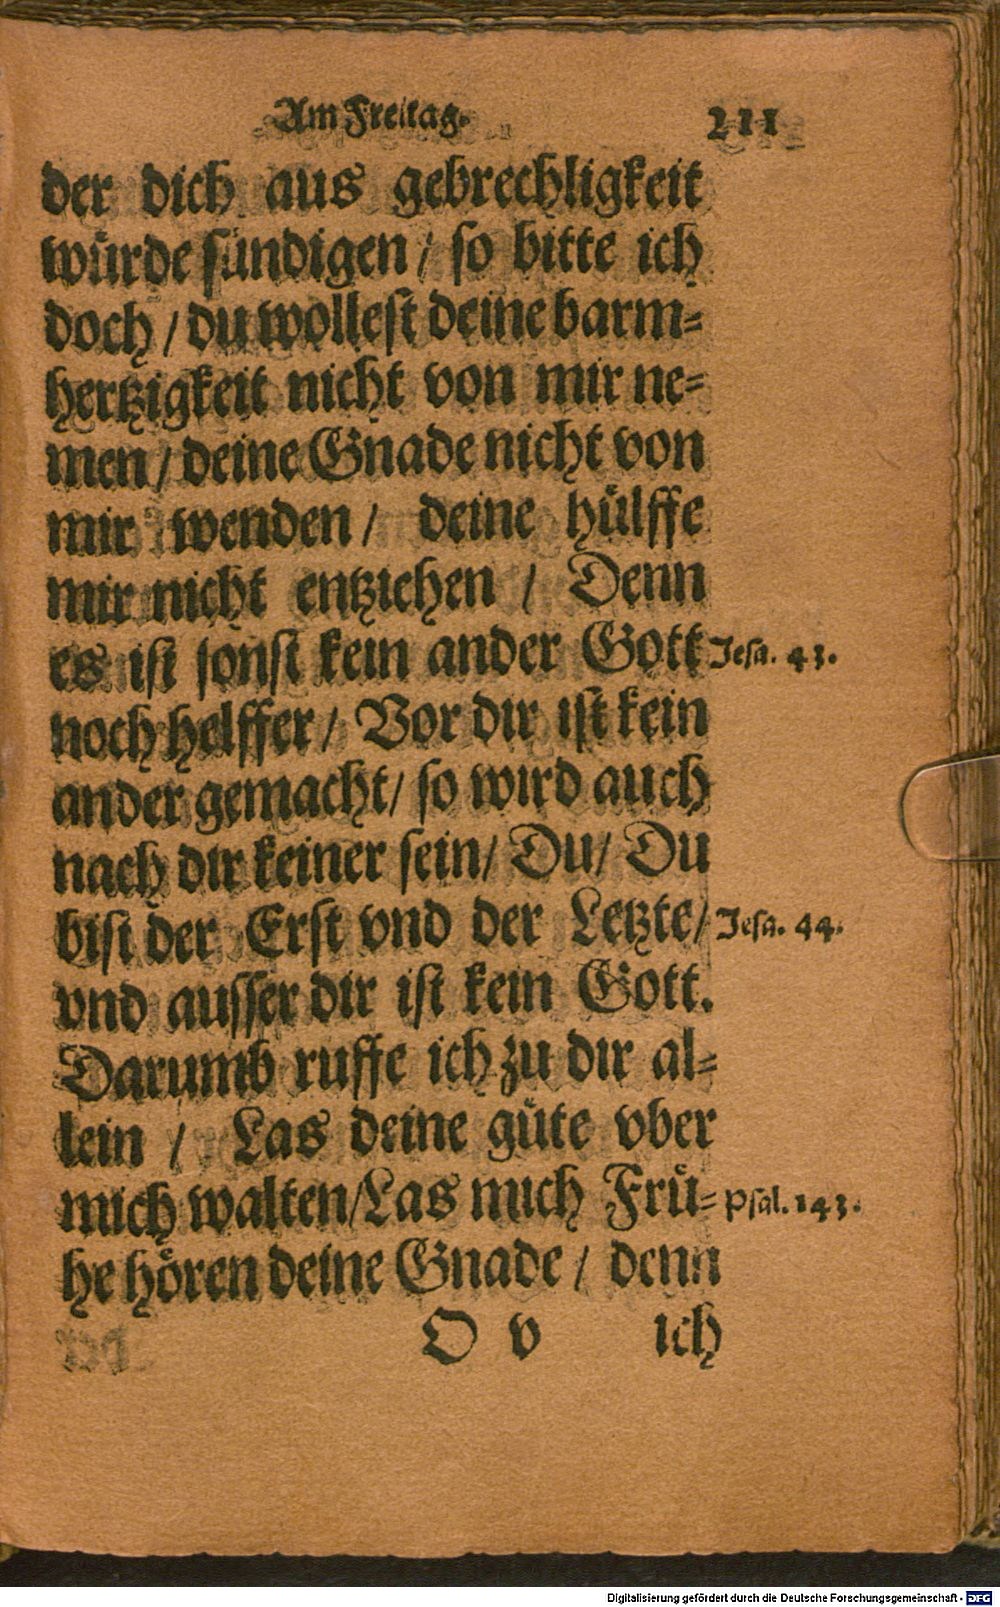 Am Freitag. 211
der dich aus gebrechligkeit
würde sündigen / so bitte ich
doch / du wollest deine barm=
hertzigkeit nicht von mir ne=
men / deine Gnade nicht von
mir wenden / deine hülffe
mir nicht entziehen / Denn
es ist sonst kein ander Gott Jesa. 43.
noch helffer / Vor dir ist kein
ander gemacht / so wird auch
nach dir keiner sein / Du / Du
bist der Erst vnd der Letzte / Jesa. 44.
vnd ausser dir ist kein Gott.
Darumb ruffe ich zu dir al=
lein / Las deine güte vber
mich walten / Las mich Frü= Psal. 143.
he hören deine Gnade / denn
O v ich
Digitalisierung gefördert durch die Deutsche Forschungsgemeinschaft - DFG